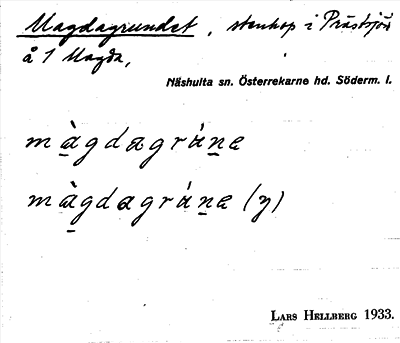 Magdagrundet, stenhop i Prästsjön
å 1 Magda,
Näshulta sn. Österrekarne hd. Söderm. l.
màgdagráne
màgdagráne (y)
LARS HELLBERG 1933.